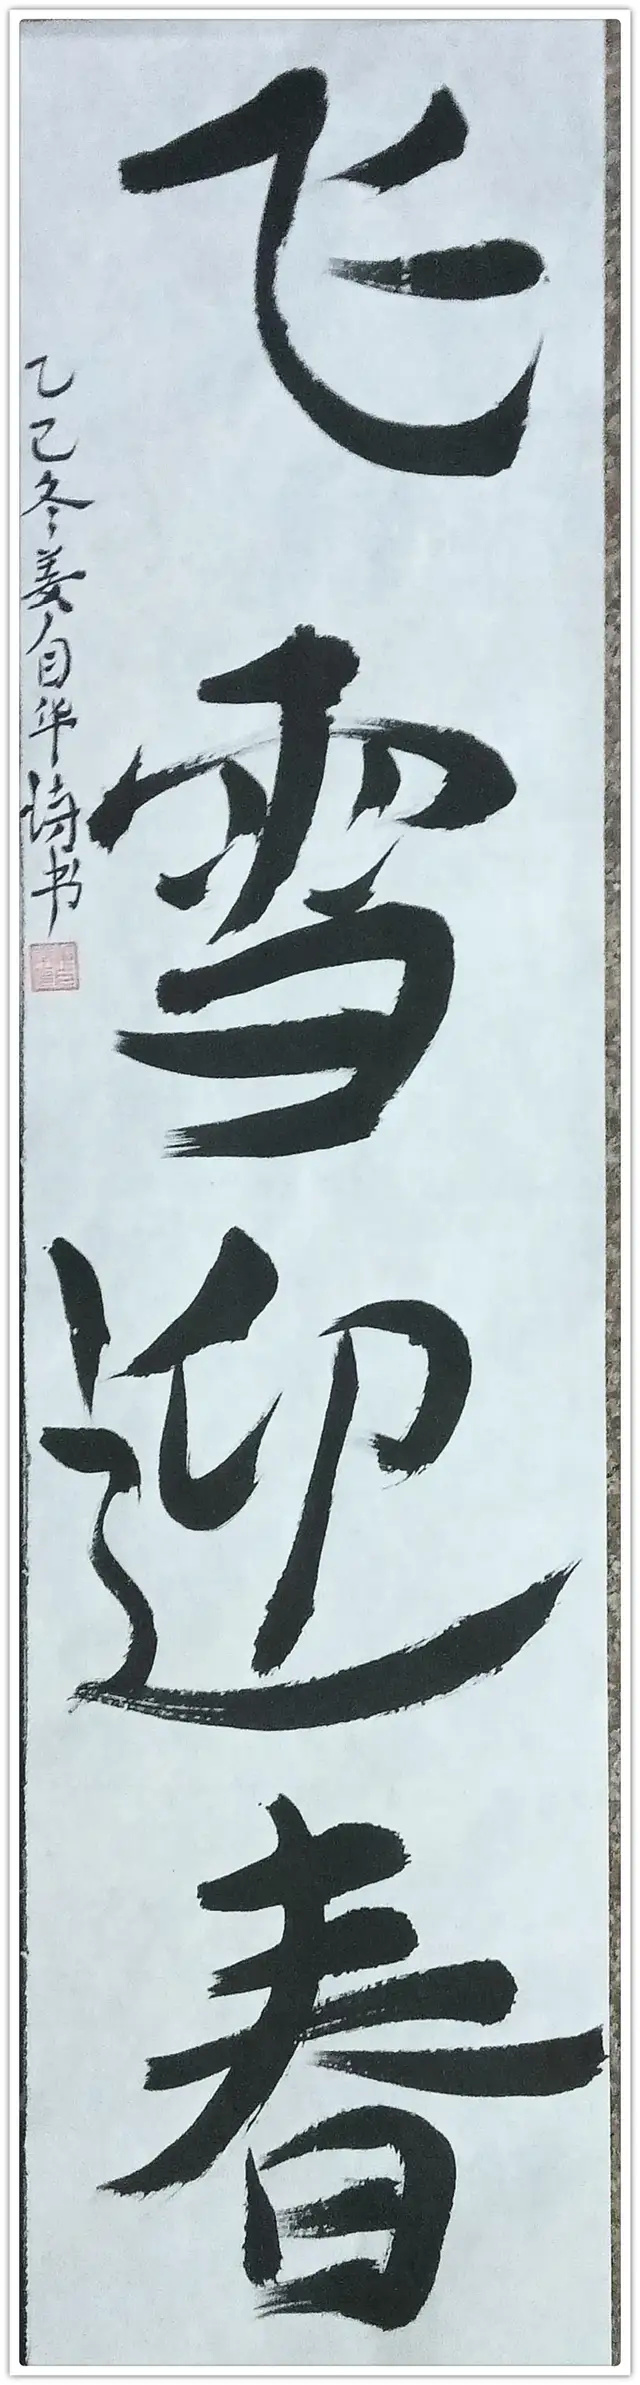 飞雪迎春
乙巳冬姜自华诗书